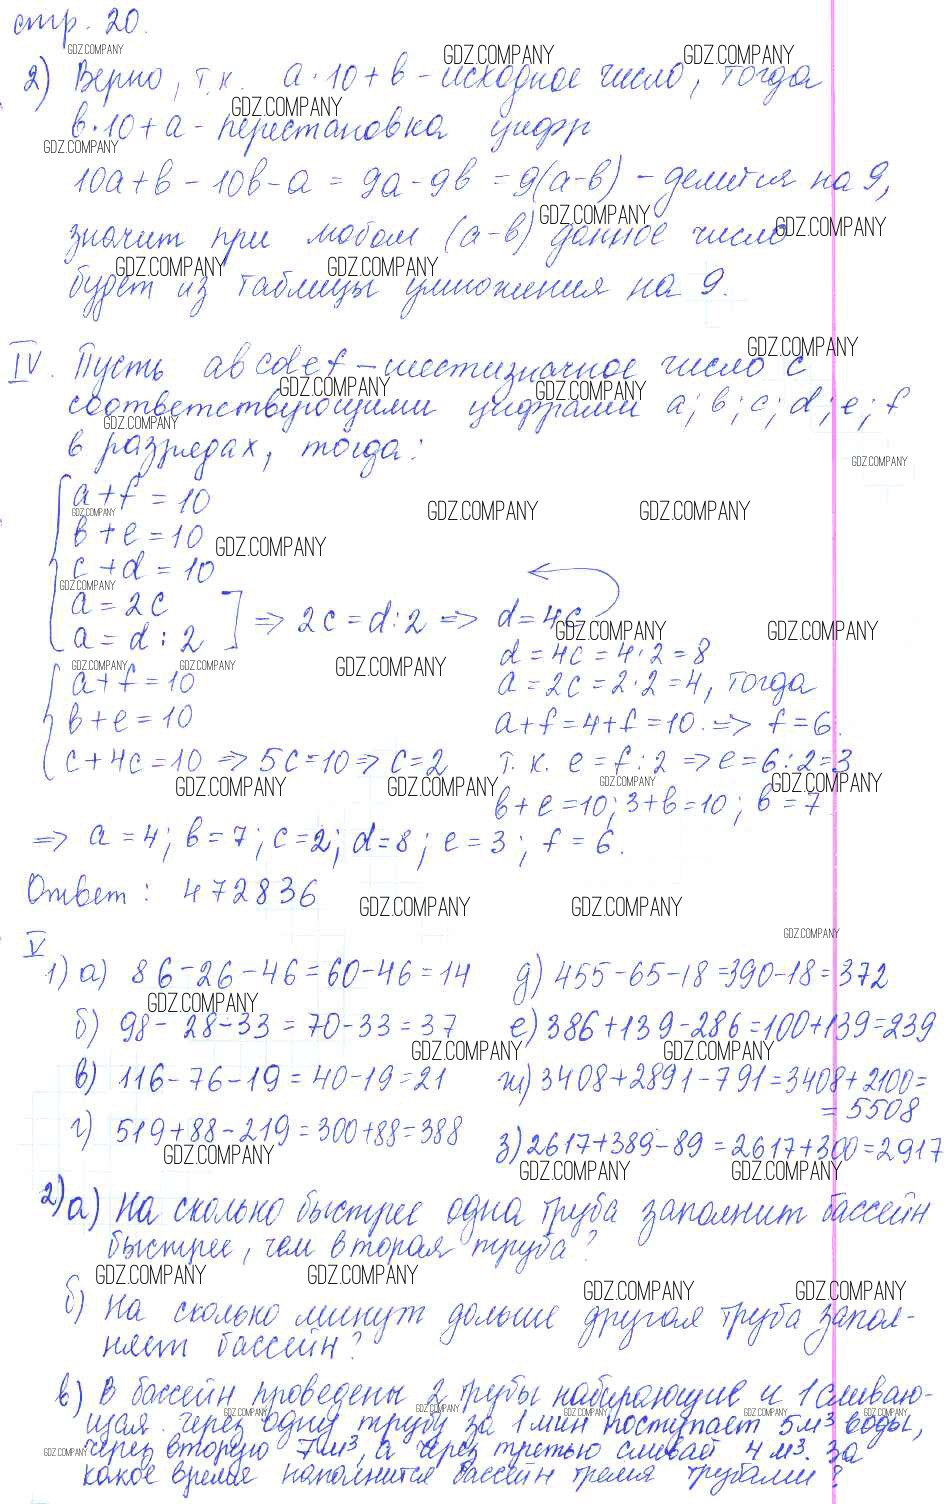 стр. 20.
2) Верно, т.к. a·10+b - исходное число, тогда
b·10+a - перестановка цифр
10a+b-10b-a = 9a-9b = 9(a-b) - делится на 9,
значит при любом (a-b) данное число
будет из таблицы умножения на 9.
IV. Пусть abcdef - шестизначное число с
соответствующими цифрами a; b; c; d; e; f
в разрядах, тогда:
a+f=10
b+e=10
c+d=10
a=2c
a=d:2 ] => 2c=d:2 => d=4c
d=4c=4·2=8
a+f=10 a=2c=2·2=4, тогда
b+e=10 a+f=4+f=10 => f=6.
c+4c=10 => 5c=10 => c=2 т.к. e=f:2 => e=6:2=3
b+e=10; 3+b=10; b=7
=> a=4; b=7; c=2; d=8; e=3; f=6.
Ответ: 472836
V
1) а) 86-26-46=60-46=14 д) 455-65-18=390-18=372
б) 98-28-33=70-33=37 е) 386+139-286=100+139=239
в) 116-76-19=40-19=21 ж) 3408+2891-791=3408+2100=
=5508
г) 519+88-219=300+88=388 з) 2617+389-89=2617+300=2917
2) а) На сколько быстрее одна труба заполнит бассейн
быстрее, чем вторая труба?
б) На сколько минут дольше другая труба запол-
няет бассейн?
в) В бассейн проведены 2 трубы набирающие и 1 сливаю-
щая. Через одну трубу за 1 мин поступает 5м³ воды,
через вторую 7м³, а через третью сливай 4 м³. За
какое время наполнится бассейн тремя трубами?
GDZ.COMPANY